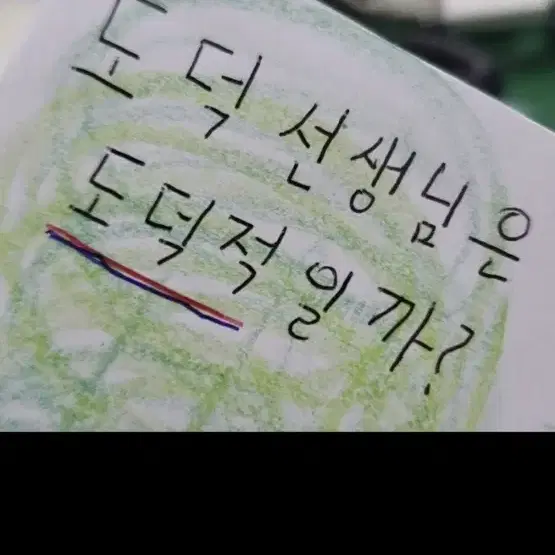 도덕 선생님은
도덕적일까?